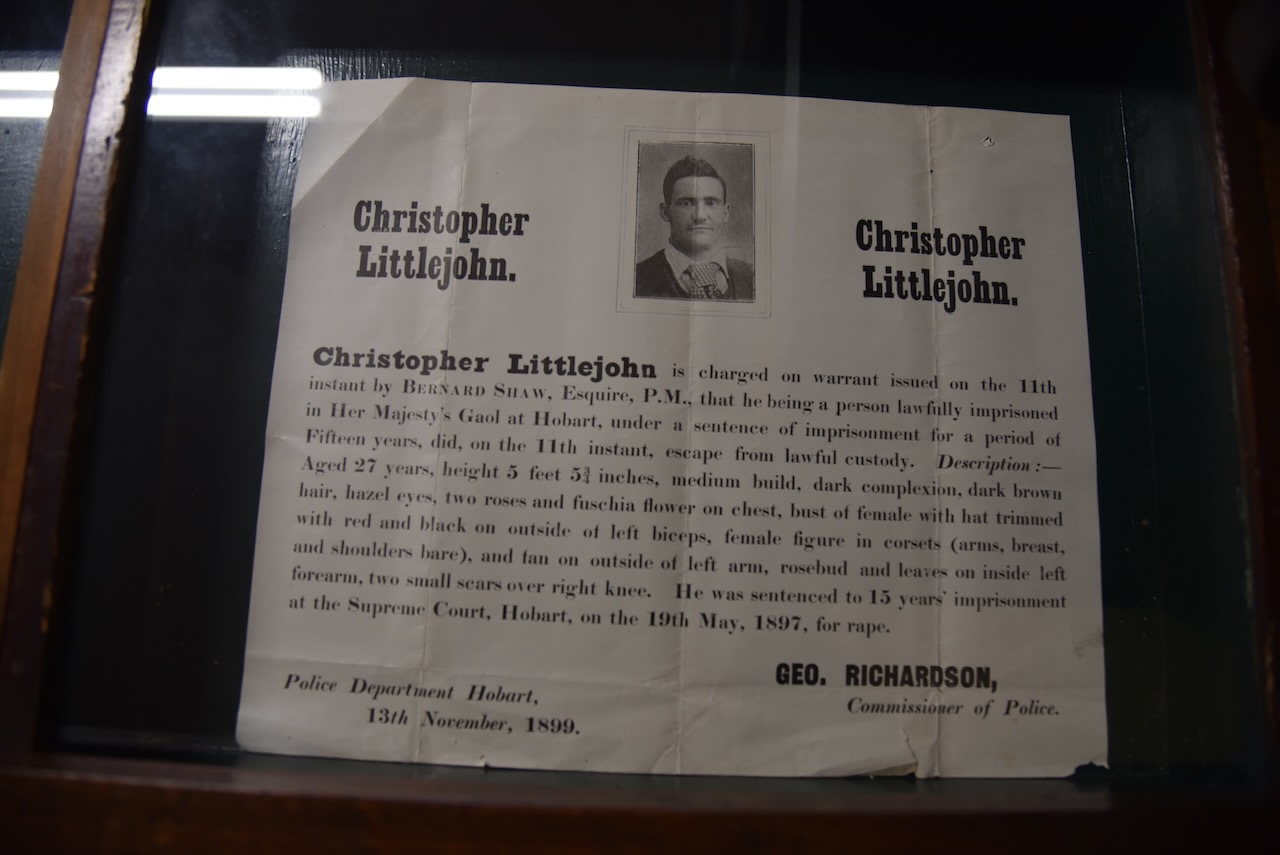 Christopher
Littlejohn.
Christopher
Littlejohn.
Christopher Littlejohn is charged on warrant issued on the 11th
instant by BERNARD SHAW, Esquire, P.M., that he being a person lawfully imprisoned
in Her Majesty's Gaol at Hobart, under a sentence of imprisonment for a period of
Fifteen years, did, on the 11th instant, escape from lawful custody. Description :—
Aged 27 years, height 5 feet 5¾ inches, medium build, dark complexion, dark brown
hair, hazel eyes, two roses and fuschia flower on chest, bust of female with hat trimmed
with red and black on outside of left biceps, female figure in corsets (arms, breast,
and shoulders bare), and fan on outside of left arm, rosebud and leaves on inside left
forearm, two small scars over right knee. He was sentenced to 15 years' imprisonment
at the Supreme Court, Hobart, on the 19th May, 1897, for rape.
GEO. RICHARDSON,
Commissioner of Police.
Police Department Hobart,
13th November, 1899.